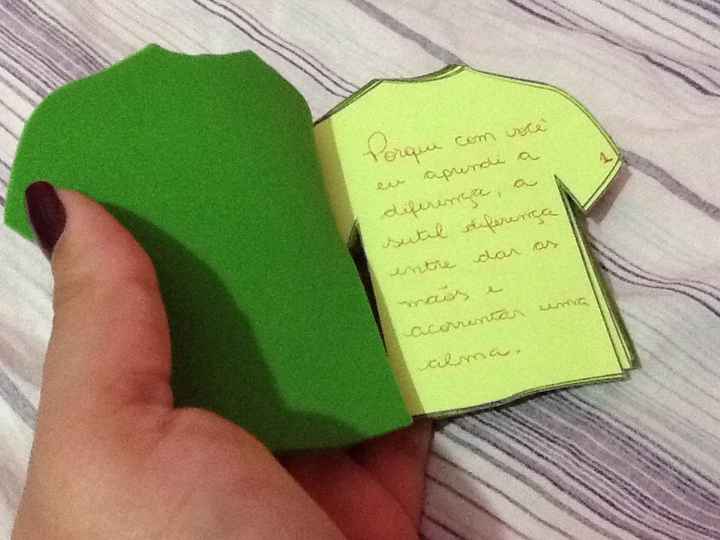 Porque com você
eu aprendi a
diferença, a
sutil diferença
entre dar as
mãos e
acorrentar uma
alma.
1